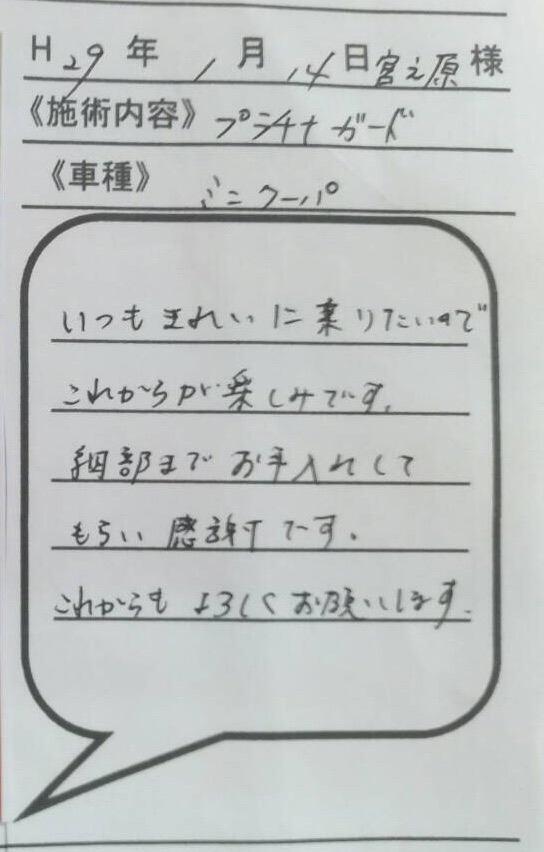 H29年 1月 14日 宮之原 様
《施術内容》 プラチナガード
《車種》 ミニクーパ
いつもきれいに乗りたいので
これからが楽しみです。
細部までお手入れして
もらい感謝です。
これからもよろしくお願いします。